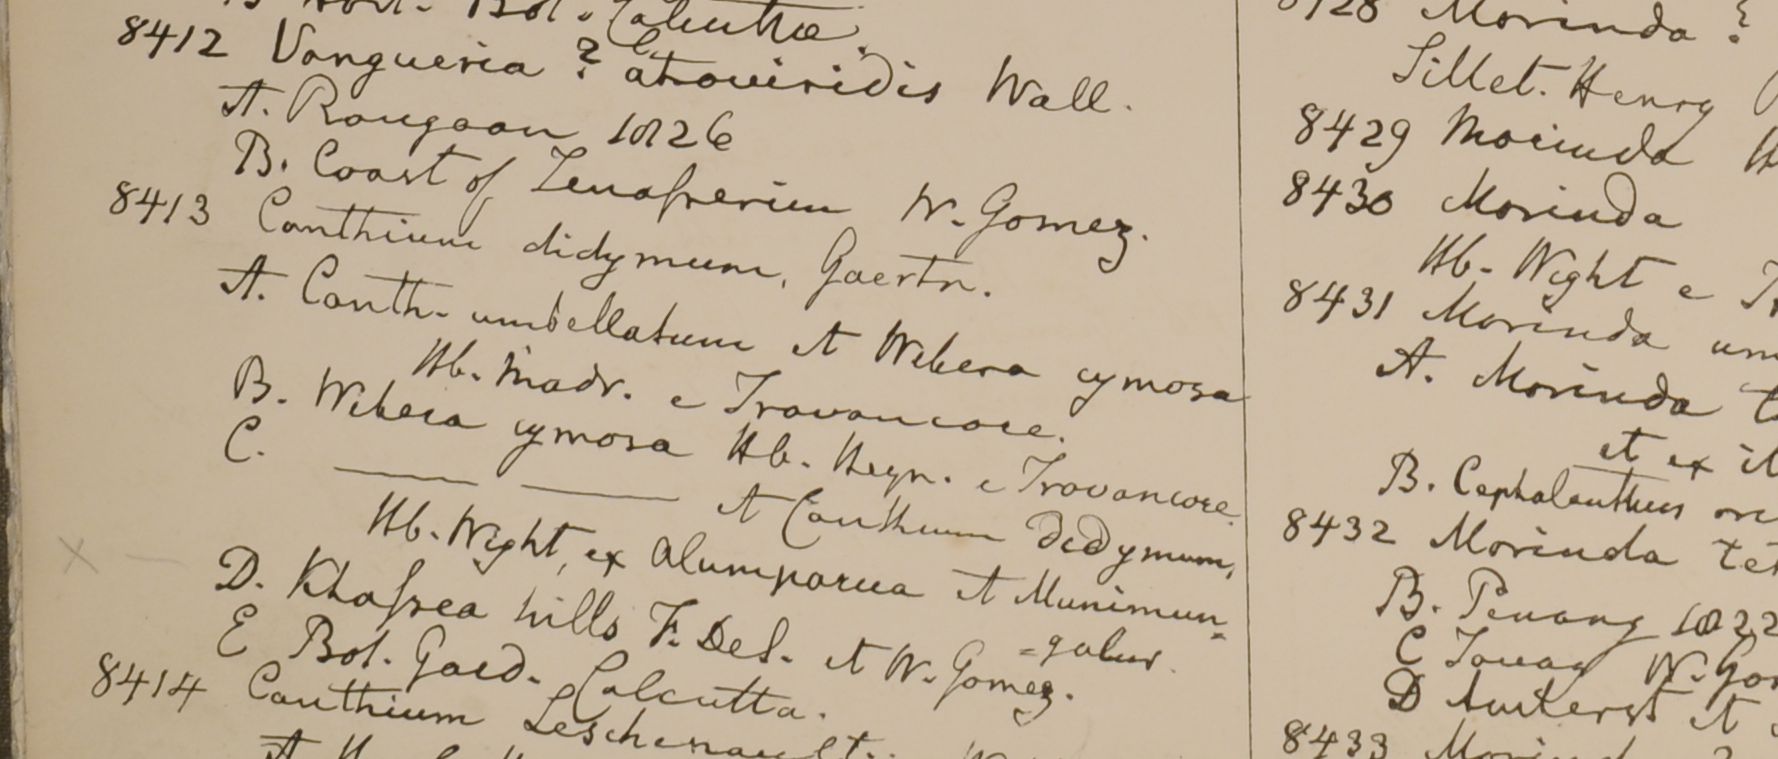 B Hort. Bot. Calcuttae.
8412 Vangueria ? atroviridis Wall.
A. Rangoon 1826
B. Coast of Tenasserim W. Gomez.
8413 Canthium didymum, Gaertn.
A. Canth. umbellatum et Webera cymosa
Hb. Madr. e Travancore.
B. Webera cymosa Hb. Heyn. e Travancore.
C. —— —— et Canthium didymum,
Hb. Wight, ex Alumparua et Munimun-
=galur.
D. Khassea hills F. DeS. et W. Gomez.
E Bot. Gard. Calcutta.
8414 Canthium Leschenaulti
A
8428 Morinda ?
Sillet. Henry
8429 Morinda
8430 Morinda
Hb. Wight e
8431 Morinda um
A. Morinda
et ex
B. Cephalanthus
8432 Morinda te
B. Penang 1822
C Tavay W. Go
D Amherst et
8433 Morind